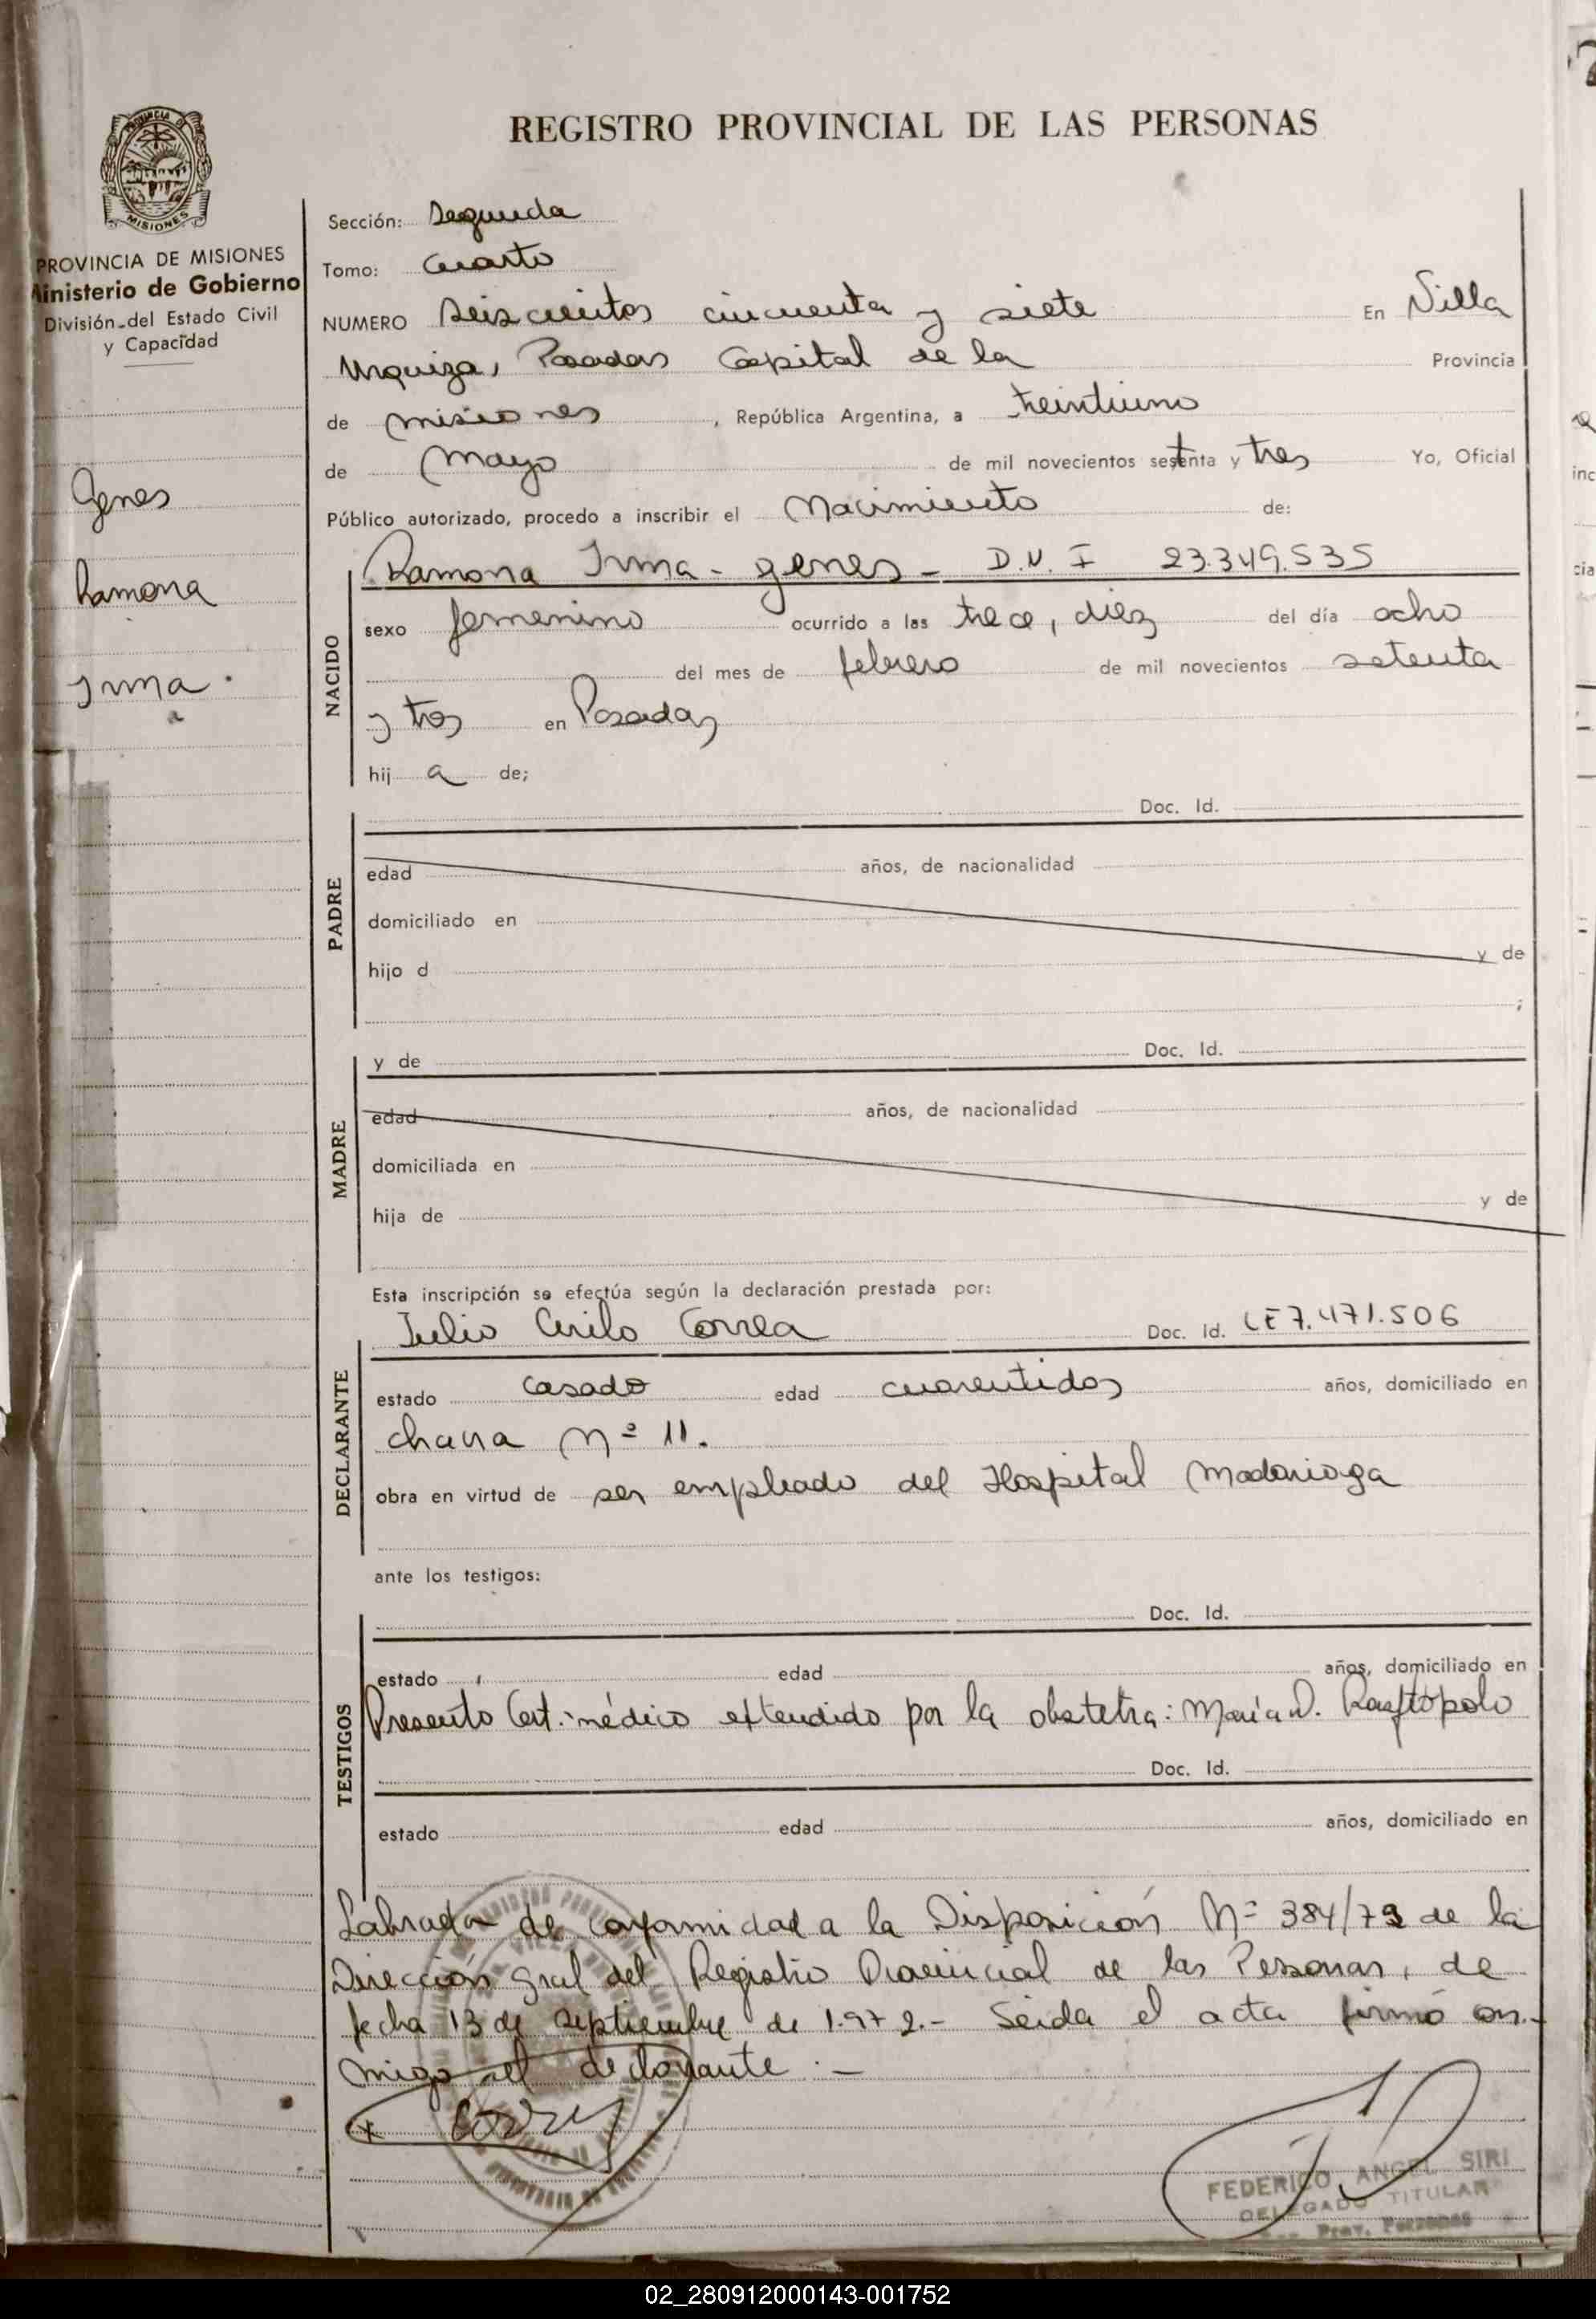 REGISTRO PROVINCIAL DE LAS PERSONAS
PROVINCIA DE
MISIONES
PROVINCIA DE MISIONES
Ministerio de Gobierno
División del Estado Civil
y Capacidad
Genes
Ramona
Irma.
Sección: Segunda
Tomo: Cuarto
NUMERO Seiscientos cincuenta y siete En Villa
Urquiza, Posadas Capital de la Provincia
de misiones, República Argentina, a treintiuno
de Mayo de mil novecientos setenta y tres Yo, Oficial
Público autorizado, procedo a inscribir el Nacimiento de:
Ramona Irma - genes - D.N.I 23.349.535
NACIDO
sexo femenino ocurrido a las trece, diez del día ocho
del mes de febrero de mil novecientos setenta
y tres en Posadas
hij a de;
PADRE
Doc. Id.
edad años, de nacionalidad
domiciliado en
hijo d y de
;
MADRE
y de Doc. Id.
edad años, de nacionalidad
domiciliada en
hija de y de
Esta inscripción se efectúa según la declaración prestada por:
DECLARANTE
Julio Cirilo Correa Doc. Id. LE 7.471.506
estado casado edad cuarentidos años, domiciliado en
chacra Nº 11.
obra en virtud de ser empleado del Hospital Madariaga
ante los testigos:
TESTIGOS
Doc. Id.
estado edad años, domiciliado en
Presento Cert. médico extendido por la obstetra: María D.
Doc. Id.
estado edad años, domiciliado en
Labrada de conformidad a la Disposición Nº 384/72 de la
Dirección Gral del Registro Provincial de las Personas, de
fecha 13 de septiembre de 1.972.- Leida el acta firmó con-
migo el declarante.-
FEDERICO ANGEL SIRI
DELEGADO TITULAR
Prov. Personas
02_280912000143-001752